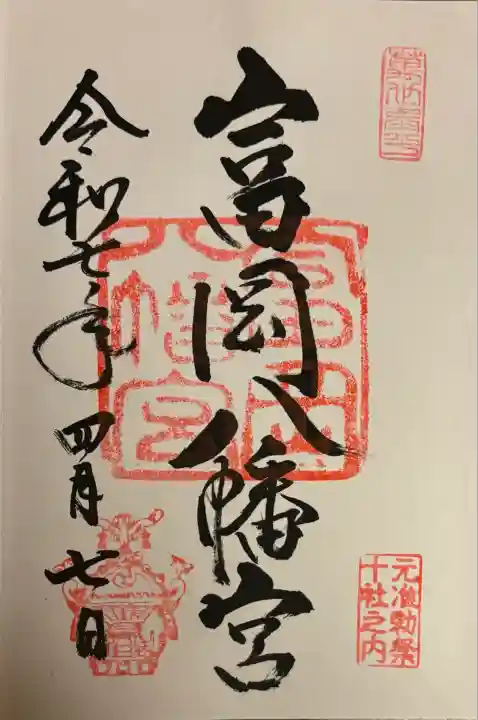 富岡八幡宮
令和七年四月七日
富岡八幡宮
元准勅祭
十社之内